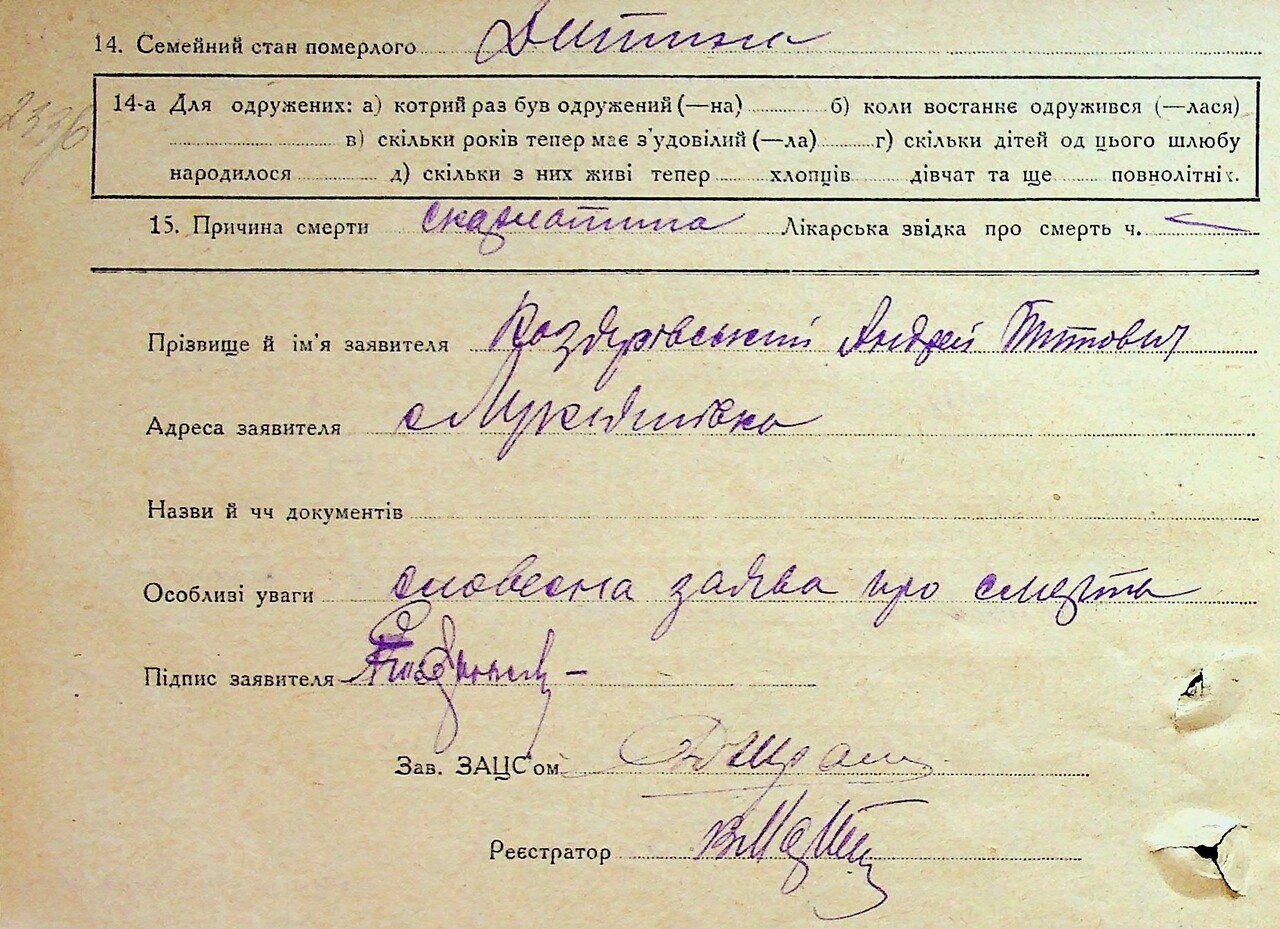 14. Семейний стан померлого Дитина
14-а Для одружених: а) котрий раз був одружений (—на) б) коли востаннє одружився (—лася)
в) скільки років тепер має з'удовілий (—ла) г) скільки дітей од цього шлюбу
народилося д) скільки з них живі тепер хлопців дівчат та ще повнолітніх.
15. Причина смерти скарлатина Лікарська звідка про смерть ч.
Прізвище й ім'я заявителя Андрей Титович
Адреса заявителя с Лукашівка
Назви й чч документів
Особливі уваги словесна заява про смерть
Підпис заявителя
Зав. ЗАЦС'ом
Реєстратор